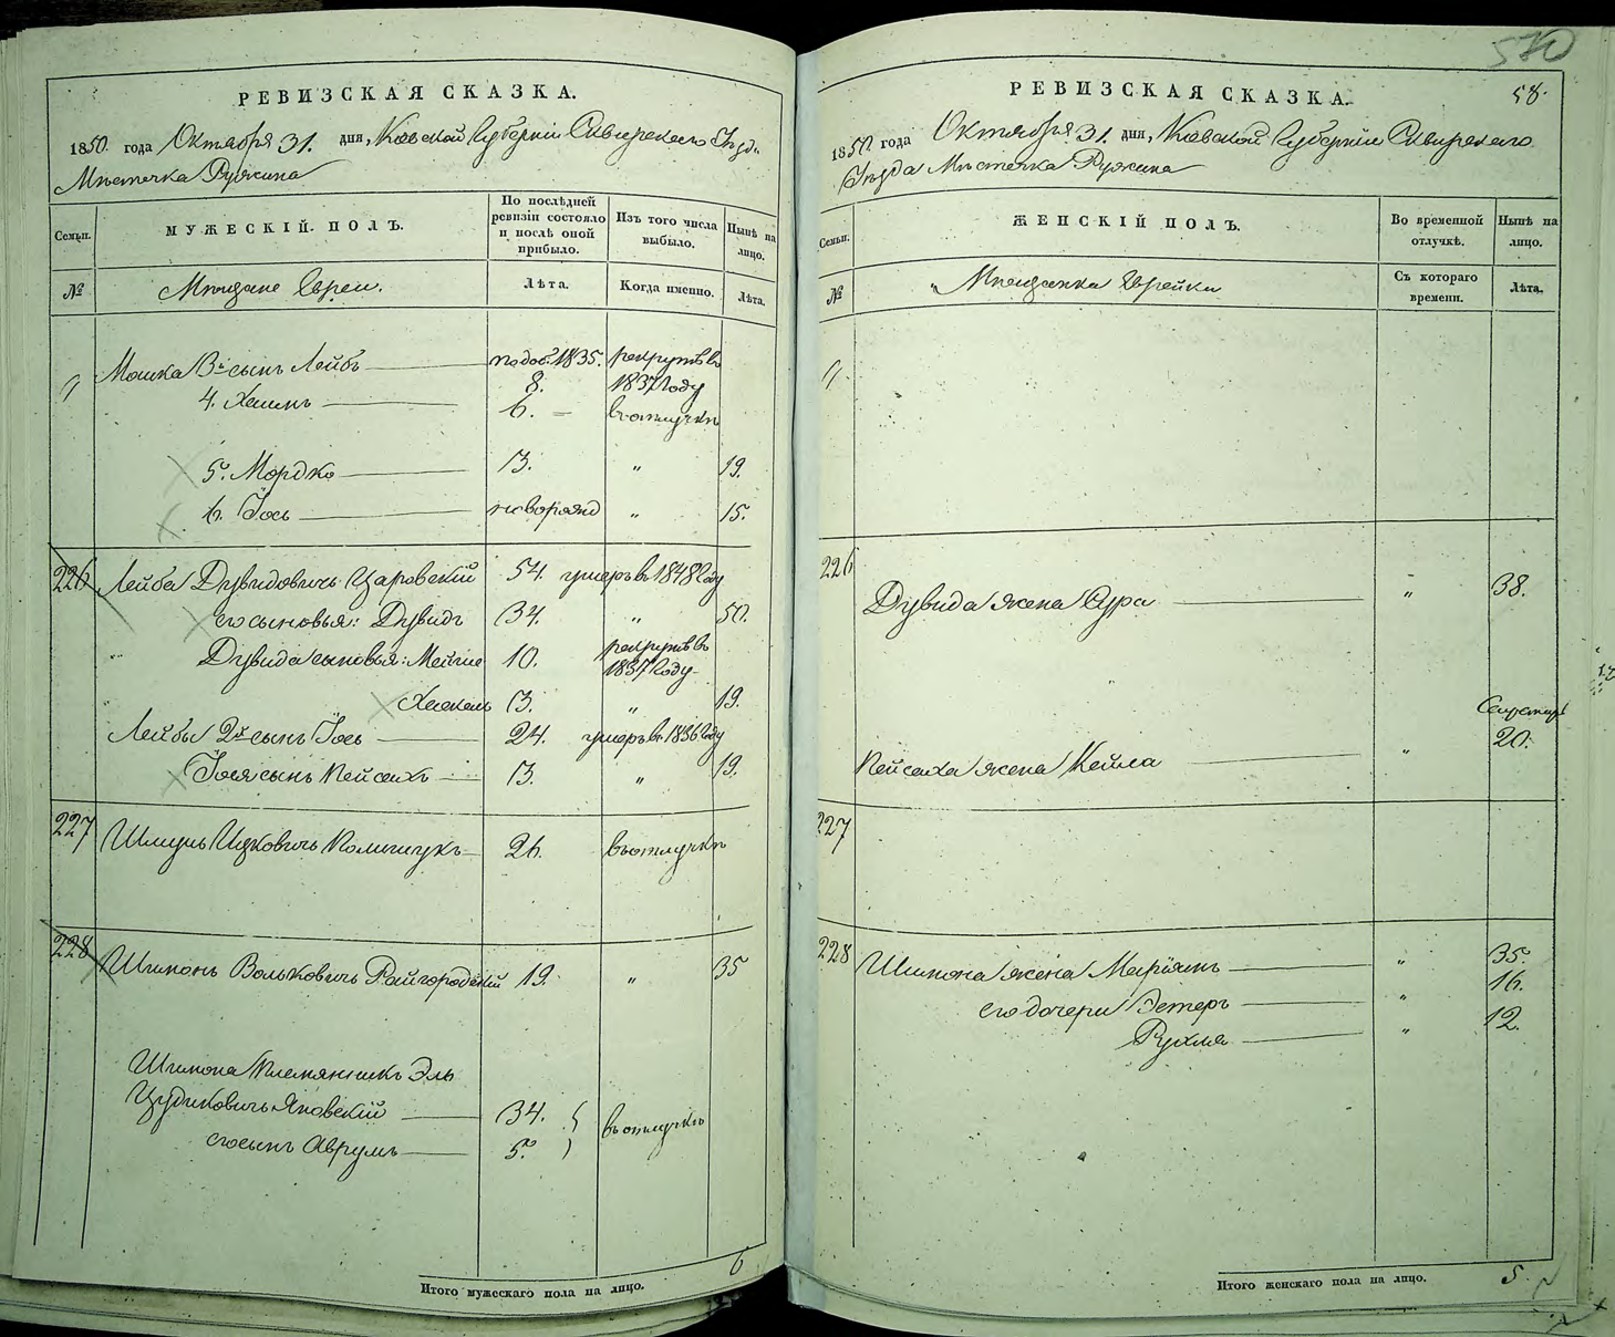 РЕВИЗСКАЯ СКАЗКА.
1850. года Октября 31. дня, Кіевской Губерніи Сквирскаго Уѣзда
Мѣстечка Ружина
Семьи.
МУЖЕСКІЙ ПОЛЪ.
По послѣдней ревизіи состояло и послѣ оной прибыло.
Изъ того числа выбыло.
Нынѣ на лицо.
№
Мѣщане Евреи.
Лѣта.
Когда именно.
Лѣта.
Мошка 3й сынъ Лейбъ 1835. рекрутъ въ
8. 1837 году
4. Хаимъ 6. въ отлучкѣ
5. Мордко 13. " 19.
6. Іось новорожд " 15.
226 Лейба Дувидовичъ Царовскій 54. умеръ въ 1848 году
его сыновья: Дувидъ 34. " 50.
Дувида сыновья: 10. рекрутъ въ
1837 году
Хаскель 3. " 19.
Лейбы 2й сынъ Іось 24. умеръ въ 1836 году
Іося сынъ Пейсахъ 3. " 19.
227 Шмуль Ицковичъ 26. въ отлучкѣ
228 Шимонъ Вольковичъ Райгородскій 19. " 35
Шимона племянникъ Эль
Яновскій 34.
въ отлучкѣ
его сынъ Аврумъ 5.
Итого мужескаго пола на лицо. 6
570
58.
РЕВИЗСКАЯ СКАЗКА.
1850. года Октября 31. дня, Кіевской Губерніи Сквирскаго
Уѣзда Мѣстечка Ружина
Семьи.
ЖЕНСКІЙ ПОЛЪ.
Во временной отлучкѣ.
Нынѣ на лицо.
№
Мѣщанки Еврейки
Съ котораго времени.
Лѣта.
226
Дувида жена Сура " 38.
20.
Пейсаха жена Кейла "
227
228 Шимона жена Маріямъ " 35.
его дочери Эстеръ " 16.
Рухля " 12.
Итого женскаго пола на лицо. 5.